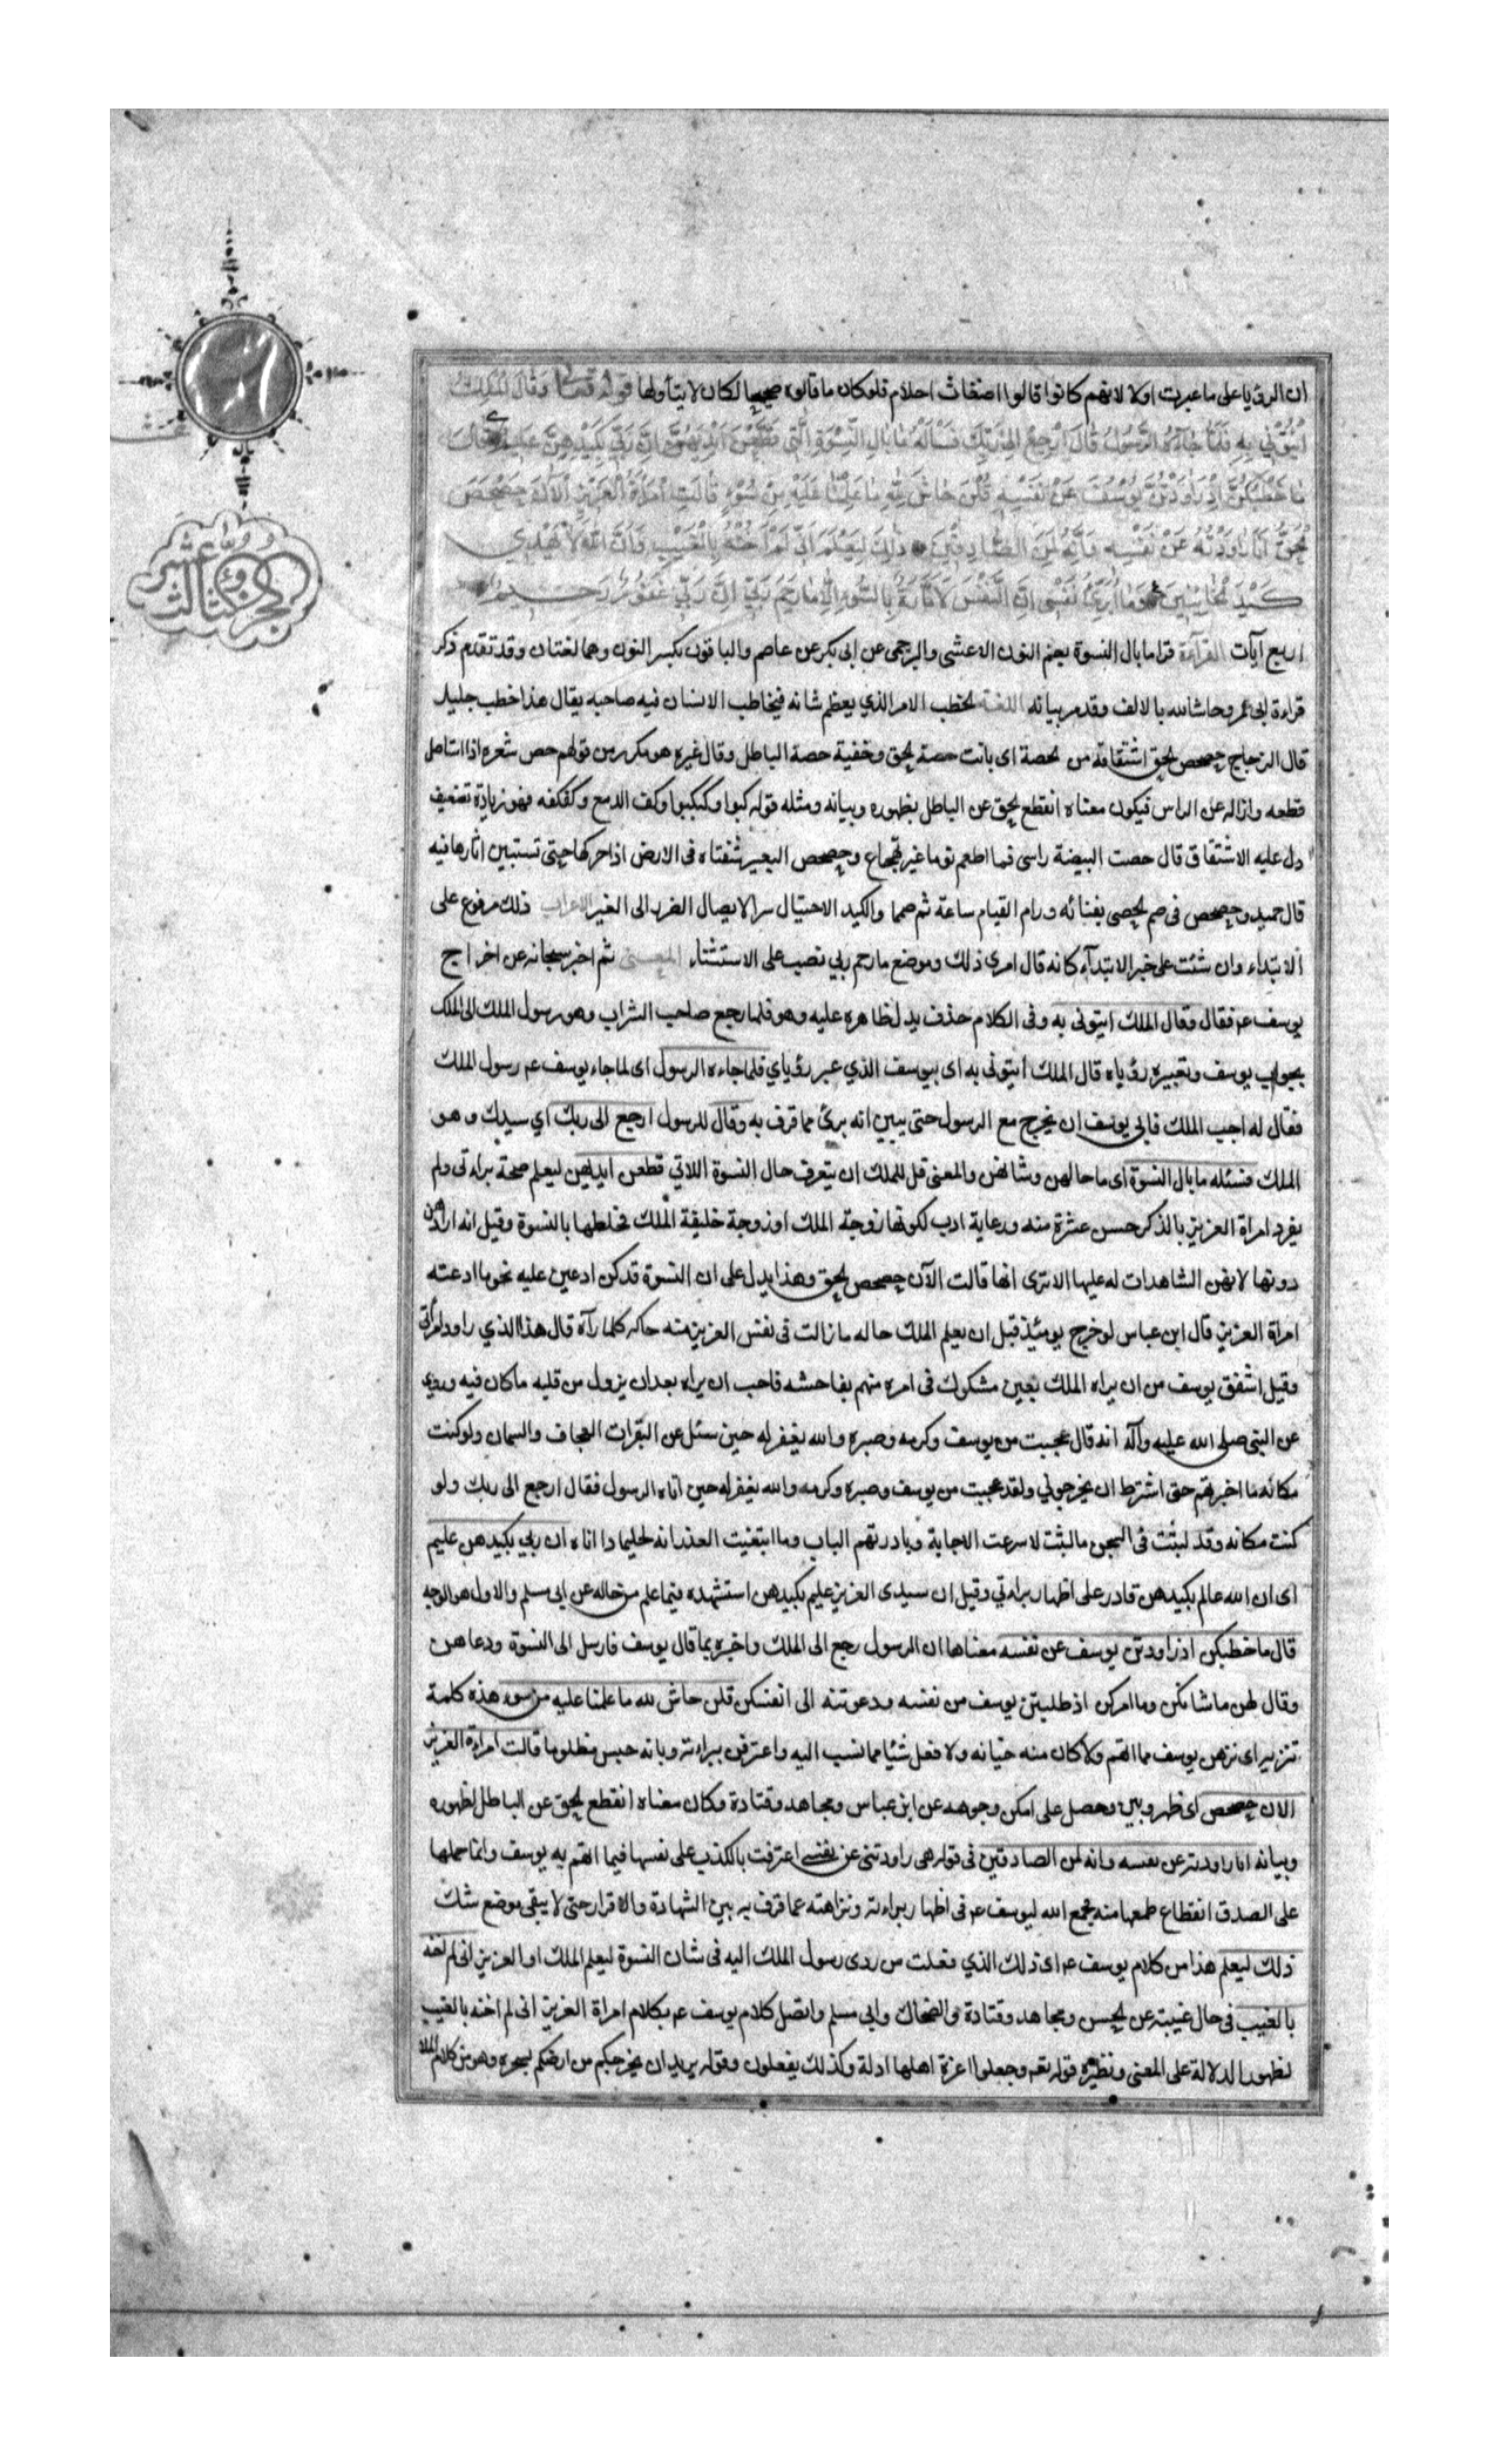 ان الرؤيا على ما عبرت اولا لانهم كانوا قالوا اضغاث احلام فلو كان ما قالوه صحيحا لكان لا يتأولها قوله تعالى وَقَالَ الْمَلِكُ
ائْتُونِي بِهِ فَلَمَّا جَاءَهُ الرَّسُولُ قَالَ ارْجِعْ اِلَى رَبِّكَ فَسْأَلْهُ مَا بَالُ النِّسْوَةِ الَّتِي قَطَّعْنَ اَيْدِيَهُنَّ اِنَّ رَبِّي بِكَيْدِهِنَّ عَلِيمٌ قَالَ
مَا خَطْبُكُنَّ اِذْ رَاوَدْتُنَّ يُوسُفَ عَنْ نَفْسِهِ قُلْنَ حَاشَ لِلّٰهِ مَا عَلِمْنَا عَلَيْهِ مِنْ سُوءٍ قَالَتِ امْرَاَةُ الْعَزِيزِ الْآنَ حَصْحَصَ
الْحَقُّ اَنَا رَاوَدْتُهُ عَنْ نَفْسِهِ وَاِنَّهُ لَمِنَ الصَّادِقِينَ ذٰلِكَ لِيَعْلَمَ اَنِّي لَمْ اَخُنْهُ بِالْغَيْبِ وَاَنَّ اللّٰهَ لَا يَهْدِي
كَيْدَ الْخَائِنِينَ وَمَا اُبَرِّئُ نَفْسِي اِنَّ النَّفْسَ لَاَمَّارَةٌ بِالسُّوءِ اِلَّا مَا رَحِمَ رَبِّي اِنَّ رَبِّي غَفُورٌ رَحِيمٌ
اربع آيات القراءة قرا ما بال النسوة بضم النون الاعشى والبرجمى عن ابى بكر عن عاصم والباقون بكسر النون وهما لغتان وقد تقدم ذكر
قراءة ابى عمرو حاشا لله بالالف وقد مر بيانه اللغة الخطب الامر الذي يعظم شانه فيخاطب الانسان فيه صاحبه يقال هذا خطب جليل
قال الزجاج حصحص الحق اشتقاقه من الحصة اى بانت حصة الحق وخفية حصة الباطل وقال غيره هو مكرر من قولهم حص شعره اذا استاصل
قطعه وازاله عن الراس فيكون معناه انقطع الحق عن الباطل بظهوره وبيانه ومثله قوله كبوا وكبكبوا وكف الدمع وكفكفه فهو زيادة تضعيف
دل عليه الاشتقاق قال حصت البيضة راسى فما اطعم نوما غير تهجاع وحصحص البعير ثفناه فى الارض اذا حركها حتى تستبين اثارها فيه
قال حميد وحصحص فى صم الحصى بفنائه ورام القيام ساعة ثم صمما والكيد الاحتيال سرا لايصال الضرر الى الغير الاعراب ذلك مرفوع على
الابتداء وان شئت على خبر الابتداء كانه قال امرى ذلك وموضع ما رحم ربي نصب على الاستثناء المعنى ثم اخبر سبحانه عن اخراج
يوسف عم فقال وقال الملك ايتونى به وفى الكلام حذف يدل ظاهره عليه وهو فلما رجع صاحب الشراب وهو رسول الملك الى الملك
بجواب يوسف وتعبيره رؤياه قال الملك ائتونى به اى بيوسف الذي عبر رؤياي فلما جاءه الرسول اى لما جاء يوسف عم رسول الملك
فقال له اجب الملك فابى يوسف ان يخرج مع الرسول حتى يبين انه برئ مما قرف به وقال للرسول ارجع الى ربك اي سيدك وهو
الملك فسئله ما بال النسوة اى ما حالهن وشانهن والمعنى قل للملك ان يتعرف حال النسوة اللاتي قطعن ايديهن ليعلم صحة براءتى ولم
يفرد امراة العزيز بالذكر حسن عشرة منه ورعاية ادب لكونها زوجة الملك او زوجة خليفة الملك فخلطها بالنسوة وقيل انه ارادهن
دونها لانهن الشاهدات له عليها الاترى انها قالت الآن حصحص الحق وهذا يدل على ان النسوة قد كن ادعين عليه نحو ما ادعته
امراة العزيز قال ابن عباس لو خرج يومئذ قبل ان يعلم الملك حاله ما زالت فى نفس العزيز منه حاكه كلما رآه قال هذا الذي راود امراتى
وقيل اشفق يوسف من ان يراه الملك بعين مشكوك فى امره متهم بفاحشه فاحب ان يراه بعد ان يزول من قلبه ما كان فيه وروى
عن النبى صلى الله عليه وآله انه قال عجبت من يوسف وكرمه وصبره والله يغفر له حين سئل عن البقرات العجاف والسمان ولو كنت
مكانه ما اخبرتهم حتى اشترط ان يخرجوني ولقد عجبت من يوسف وصبره وكرمه والله يغفر له حين اتاه الرسول فقال ارجع الى ربك ولو
كنت مكانه وقد لبثت فى السجن ما لبث لاسرعت الاجابة وبادرتهم الباب وما ابتغيت العذر انه لحليما ذا اناه ان ربي بكيدهن عليم
اى ان الله عالم بكيدهن قادر على اظهار براءتي وقيل ان سيدى العزيز عليم بكيدهن استشهده فيما علم من حاله عن ابى مسلم والاول هو الوجه
قال ما خطبكن اذ راودتن يوسف عن نفسه معناها ان الرسول رجع الى الملك واخبره بما قال يوسف فارسل الى النسوة ودعاهن
وقال لهن ما شانكن وما امركن اذ طلبتن يوسف من نفسه ودعوتنه الى انفسكن قلن حاش لله ما علمنا عليه من سوء هذه كلمة
تنزيه اى نزهن يوسف مما اتهم ولا كان منه خيانه ولا فعل شيئا مما نسب اليه واعترفن ببراءته وبانه حبس مظلوما قالت امراءة العزيز
الان حصحص اى ظهر وبين وحصل على امكن وجوهه عن ابن عباس ومجاهد وقتادة وكان معناه انقطع الحق عن الباطل لظهوره
وبيانه انا راودته عن نفسه وانه لمن الصادقين فى قوله هى راودتنى عن نفسى اعترفت بالكذب على نفسها فيما اتهم به يوسف وانما حملها
على الصدق انقطاع طمعها منه فجمع الله ليوسف عم فى اظهار براءته ونزاهته عما قرف به بين الشهادة والاقرار حتى لا يبقى موضع شك
ذلك ليعلم هذا من كلام يوسف عم اى ذلك الذي فعلت من ردى رسول الملك اليه فى شان النسوة ليعلم الملك او العزيز انى لم اخنه
بالغيب فى حال غيبته عن الحسن ومجاهد وقتادة والضحاك وابي مسلم واتصل كلام يوسف عم بكلام امراة العزيز انى لم اخنه بالغيب
لظهور الدلالة على المعنى ونظيره قوله تعم وجعلوا اعزة اهلها ادلة وكذلك يفعلون وقوله يريد ان يخرجكم من ارضكم بسحره وهو من كلام الملا